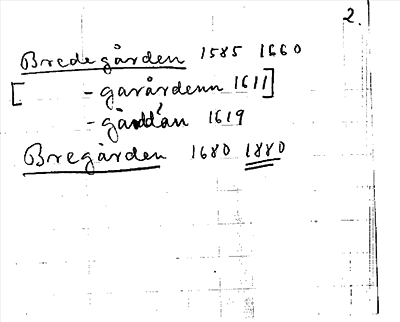 2.
Bredegården 1585 1660
[ -garårdenn 1611]
-gårdan 1619
Bregården 1680 1880